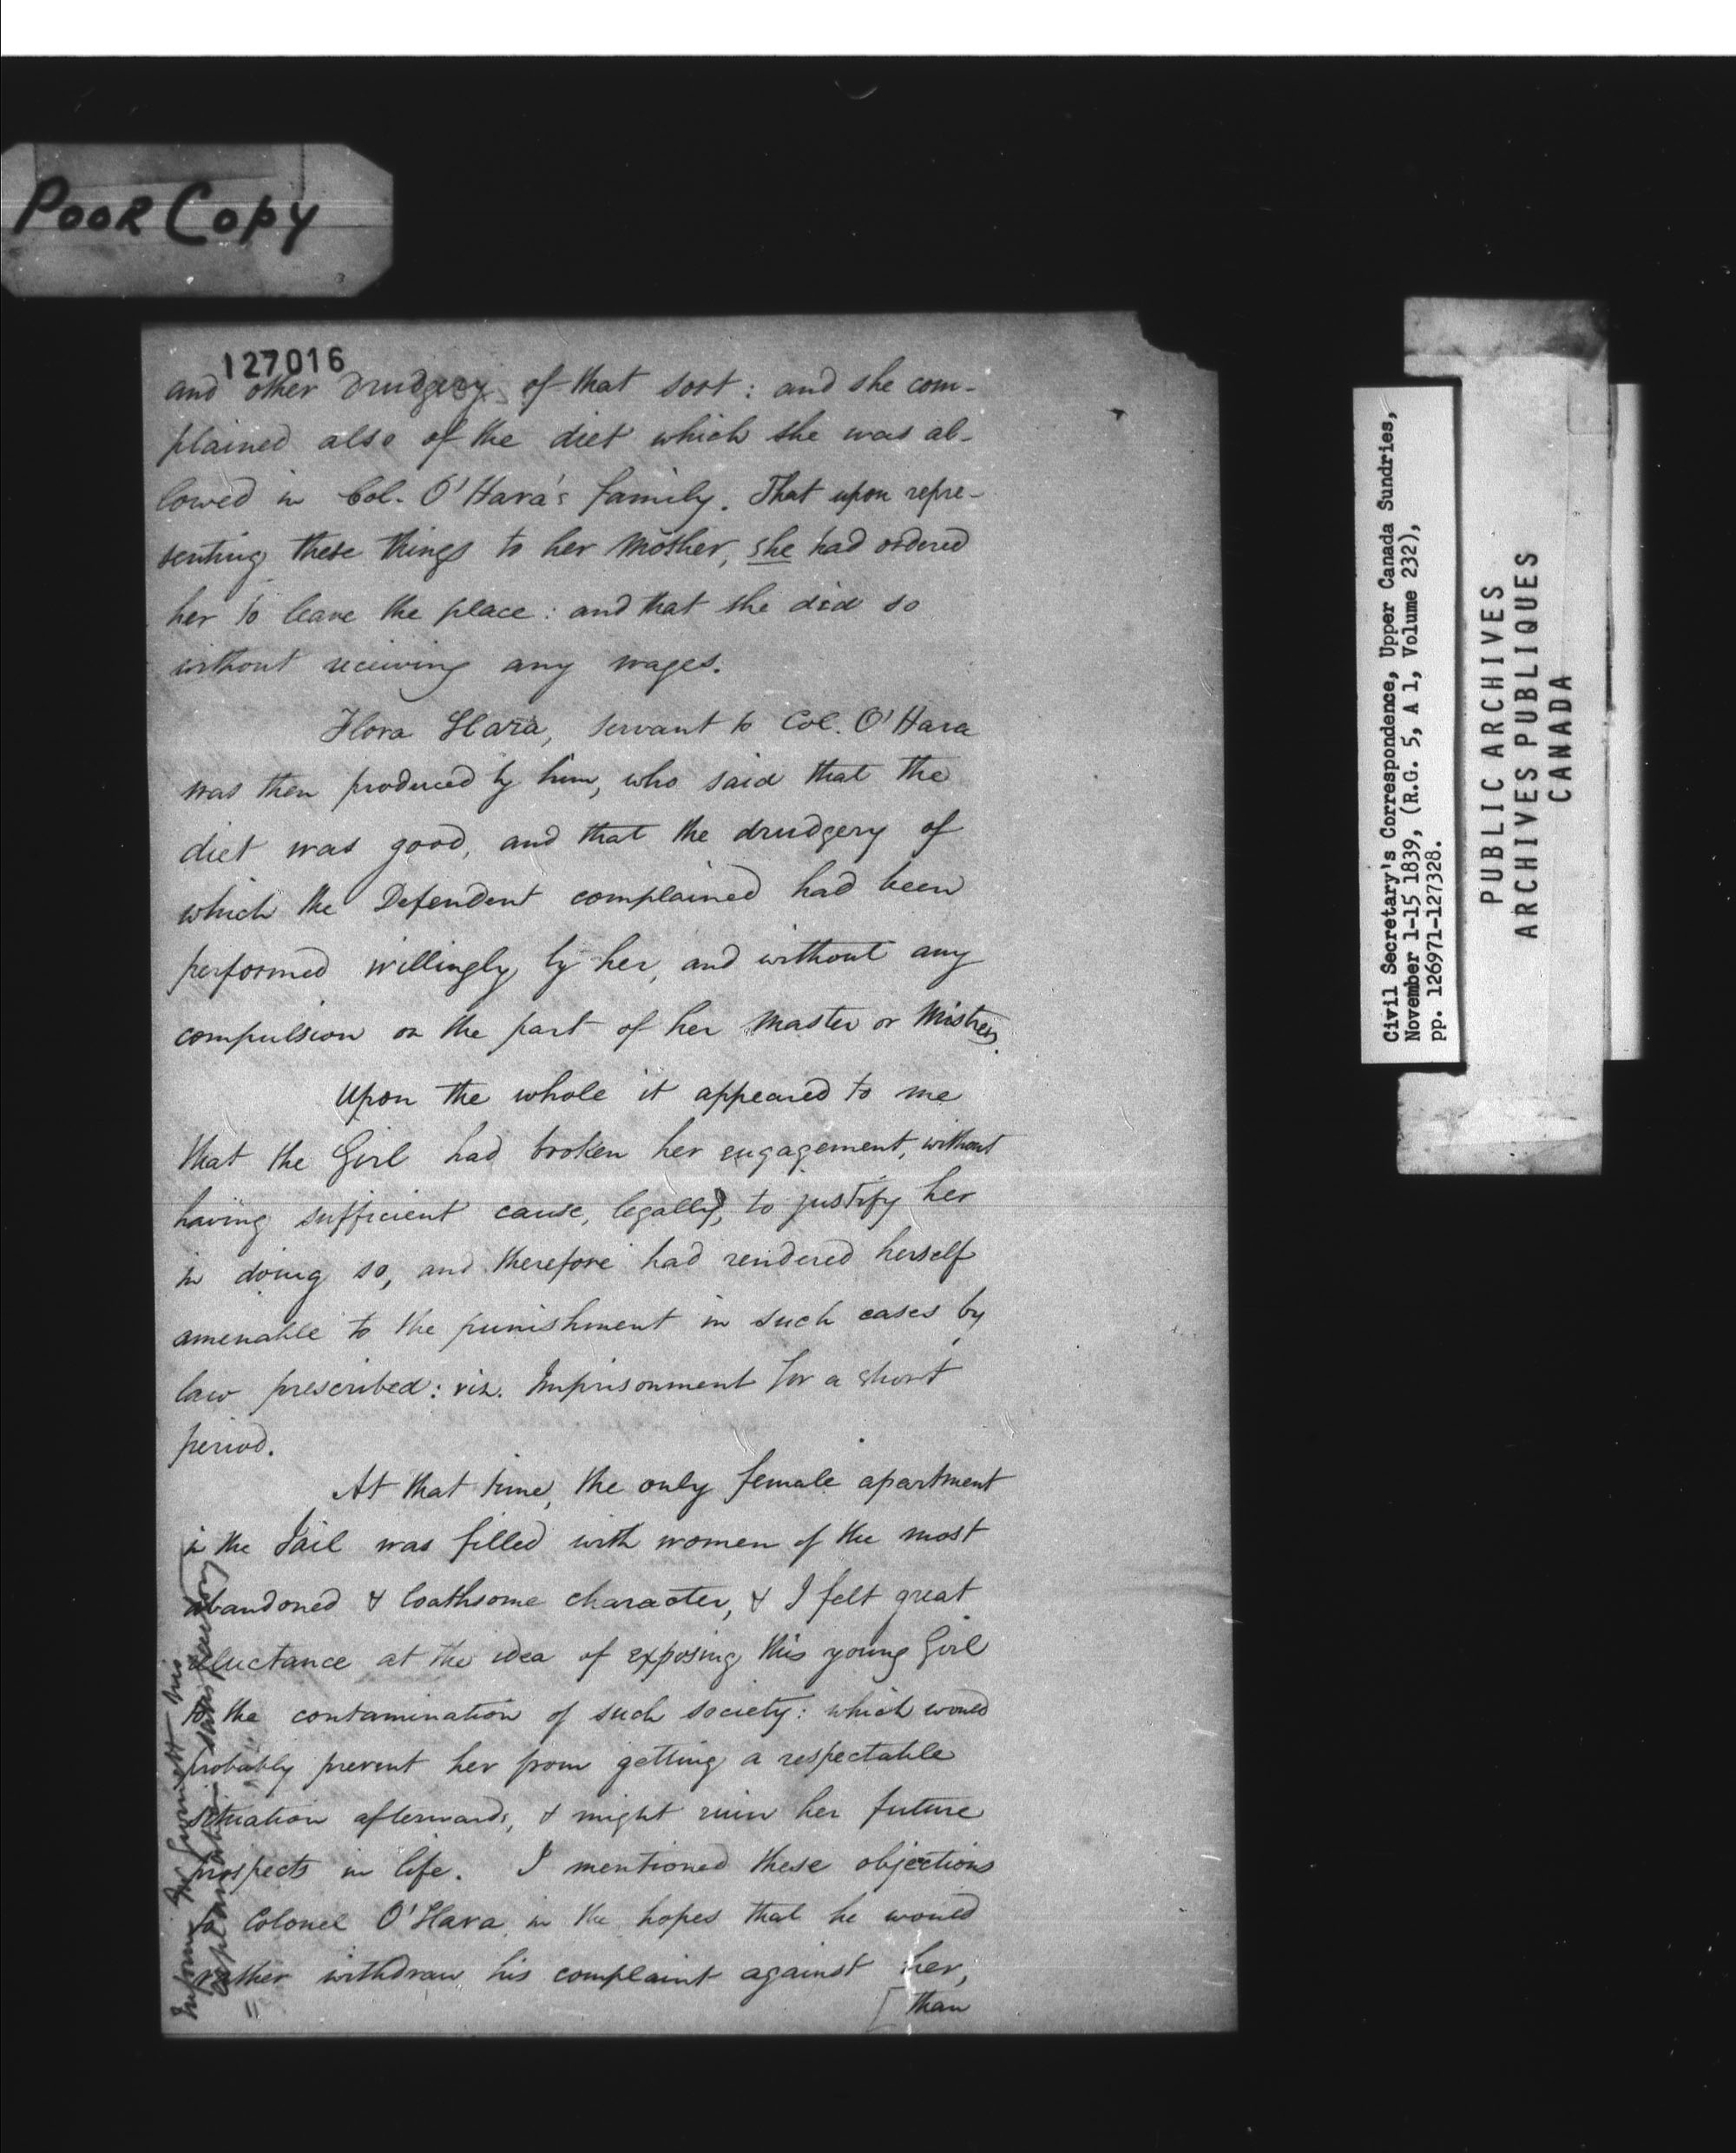 POOR COPY
127016
and other drudgery of that sort: and she com-
plained also of the diet which she was al-
lowed in Col. O'Hara's family. That upon repre-
senting these things to her Mother, she had ordered
her to leave the place: and that she did so
without receiving any wages.
Flora Hara, servant to Col. O'Hara
was then produced by him, who said that the
diet was good, and that the drudgery of
which the Defendent complained had been
performed willingly by her, and without any
compulsion on the part of her Master or Mistress.
Upon the whole it appeared to me
that the Girl had broken her engagement, without
having sufficient cause, legally, to justify her
in doing so, and therefore had rendered herself
amenable to the punishment in such cases by
law prescribed: viz. Imprisonment for a short
period.
At that time, the only female apartment
in the Jail was filled with women of the most
abandoned & loathsome character, & I felt great
reluctance at the idea of exposing this young Girl
to the contamination of such society: which would
probably prevent her from getting a respectable
situation afterwards, & might ruin her future
prospects in life. I mentioned these objections
to Colonel O'Hara in the hopes that he would
rather withdraw his complaint against her,
[than
Inform Mr Gurnett his
explanation satisfactory
Civil Secretary's Correspondence, Upper Canada Sundries,
November 1-15 1839, (R.G. 5, A 1, Volume 232),
pp. 126971-127328.
PUBLIC ARCHIVES
ARCHIVES PUBLIQUES
CANADA